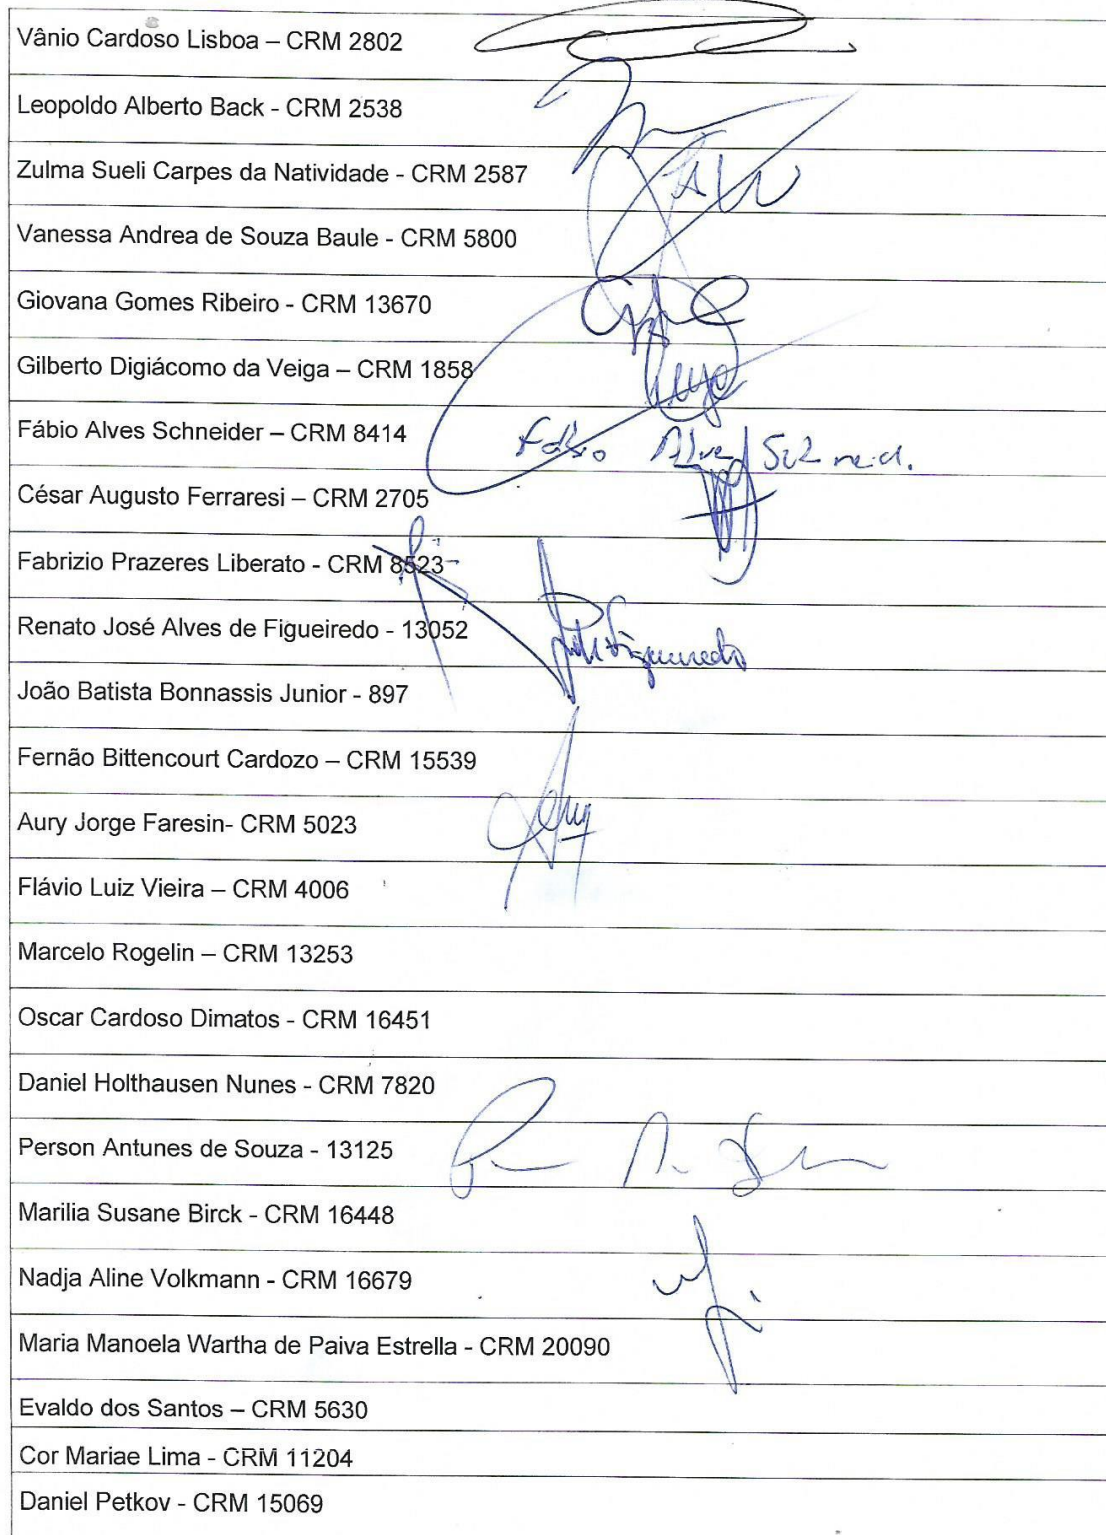 Vânio Cardoso Lisboa – CRM 2802
Leopoldo Alberto Back - CRM 2538
Zulma Sueli Carpes da Natividade - CRM 2587
Vanessa Andrea de Souza Baule - CRM 5800
Giovana Gomes Ribeiro - CRM 13670
Gilberto Digiácomo da Veiga – CRM 1858
Fábio Alves Schneider – CRM 8414 Fabio Alves
César Augusto Ferraresi – CRM 2705
Fabrizio Prazeres Liberato - CRM 8523
Renato José Alves de Figueiredo - 13052
João Batista Bonnassis Junior - 897
Fernão Bittencourt Cardozo – CRM 15539
Aury Jorge Faresin- CRM 5023
Flávio Luiz Vieira – CRM 4006
Marcelo Rogelin – CRM 13253
Oscar Cardoso Dimatos - CRM 16451
Daniel Holthausen Nunes - CRM 7820
Person Antunes de Souza - 13125
Marilia Susane Birck - CRM 16448
Nadja Aline Volkmann - CRM 16679
Maria Manoela Wartha de Paiva Estrella - CRM 20090
Evaldo dos Santos – CRM 5630
Cor Mariae Lima - CRM 11204
Daniel Petkov - CRM 15069